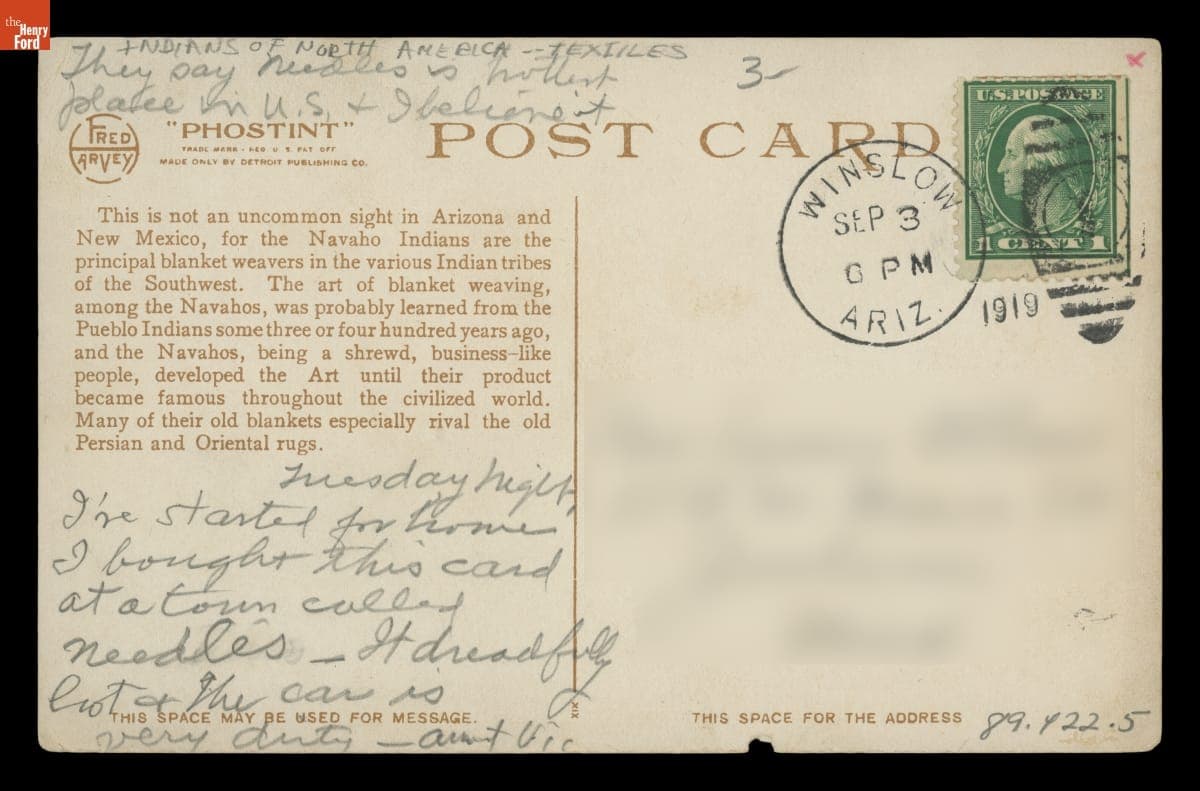 the
Henry
Ford
INDIANS OF NORTH AMERICA -- TEXTILES
They say Needles is hottest
place in U.S. & I believe it
3-
FRED
HARVEY
"PHOSTINT"
TRADE MARK - REG U. S. PAT OFF
MADE ONLY BY DETROIT PUBLISHING CO.
POST CARD
U.S. POSTAGE
1 CENT 1
WINSLOW
SEP 3
6 PM
ARIZ.
1919
This is not an uncommon sight in Arizona and
New Mexico, for the Navaho Indians are the
principal blanket weavers in the various Indian tribes
of the Southwest. The art of blanket weaving,
among the Navahos, was probably learned from the
Pueblo Indians some three or four hundred years ago,
and the Navahos, being a shrewd, business-like
people, developed the Art until their product
became famous throughout the civilized world.
Many of their old blankets especially rival the old
Persian and Oriental rugs.
Tuesday night,
I've started for home
I bought this card
at a town called
needles - It dreadfully
hot & the car is
very dirty - aunt Vic
XIX
THIS SPACE MAY BE USED FOR MESSAGE.
THIS SPACE FOR THE ADDRESS
89.422.5